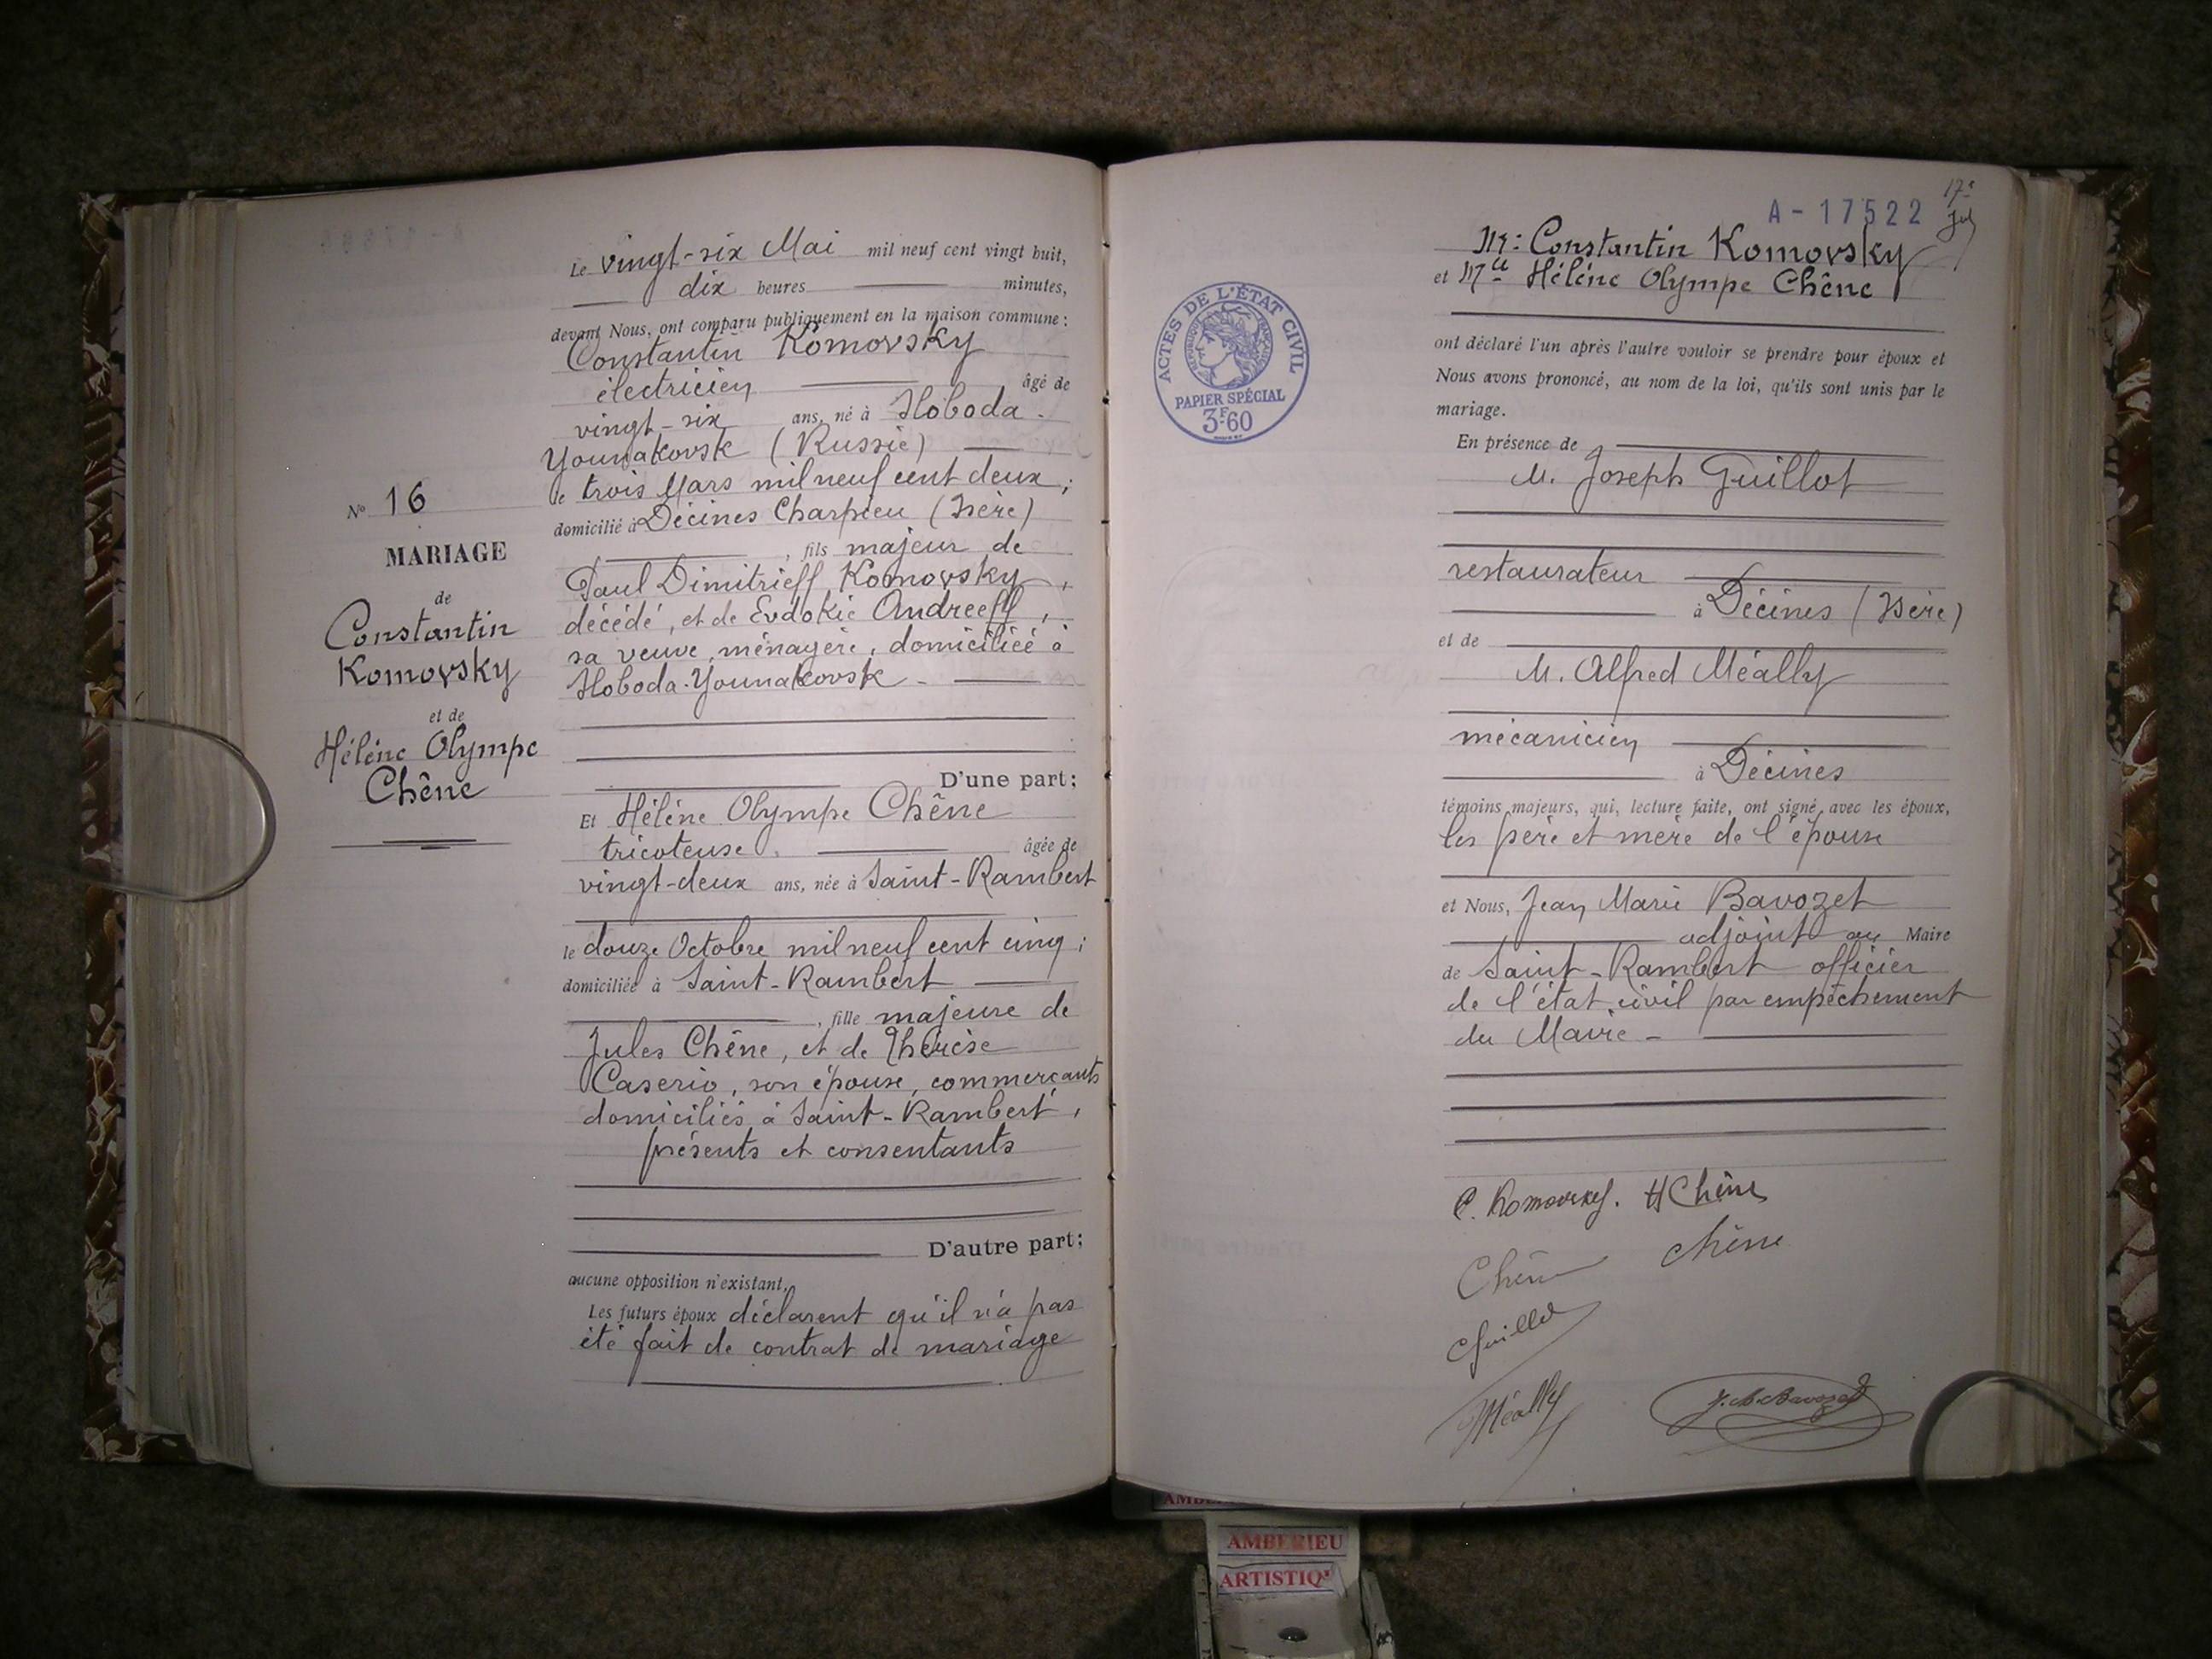 Nº 16
MARIAGE
de
Constantin
Komovsky
et de
Hélène Olympe
Chêne
Le vingt-six Mai mil neuf cent vingt huit,
dix heures minutes,
devant Nous, ont comparu publiquement en la maison commune :
Constantin Komovsky
électricien âgé de
vingt-six ans, né à Sloboda-
Younakovsk (Russie)
le trois Mars mil neuf cent deux ;
domicilié à Décines Charpieu (Isère)
, fils majeur de
Paul Dimitrieff Komovsky,
décédé, et de Evdokie Andreeff,
sa veuve, ménagère, domiciliée à
Sloboda-Younakovsk -
D'une part ;
Et Hélène Olympe Chêne
tricoteuse, âgée de
vingt-deux ans, née à Saint-Rambert
le douze Octobre mil neuf cent cinq ;
domiciliée à Saint-Rambert
, fille majeure de
Jules Chêne, et de Thérèse
Caserio, son épouse, commerçants
domiciliés à Saint-Rambert,
présents et consentants
D'autre part ;
aucune opposition n'existant,
Les futurs époux déclarent qu'il n'a pas
été fait de contrat de mariage
ACTES DE L'ÉTAT CIVIL
RÉPUBLIQUE FRANÇAISE
PAPIER SPÉCIAL
3F60
A-17522
Mr: Constantin Komovsky
et Mlle Hélène Olympe Chêne
ont déclaré l'un après l'autre vouloir se prendre pour époux et
Nous avons prononcé, au nom de la loi, qu'ils sont unis par le
mariage.
En présence de
M. Joseph Guillot
restaurateur
à Décines (Isère)
et de
M. Alfred Méally
mécanicien
à Décines
témoins majeurs, qui, lecture faite, ont signé avec les époux,
les père et mère de l'épouse
et Nous, Jean Marie Bavozet
adjoint au Maire
de Saint-Rambert officier
de l'état civil par empêchement
du Maire -
C. Komovsky. H Chêne
Chêne Chêne
Guillot
Méally J. M. Bavozet
AMBERIEU
ARTISTIQ